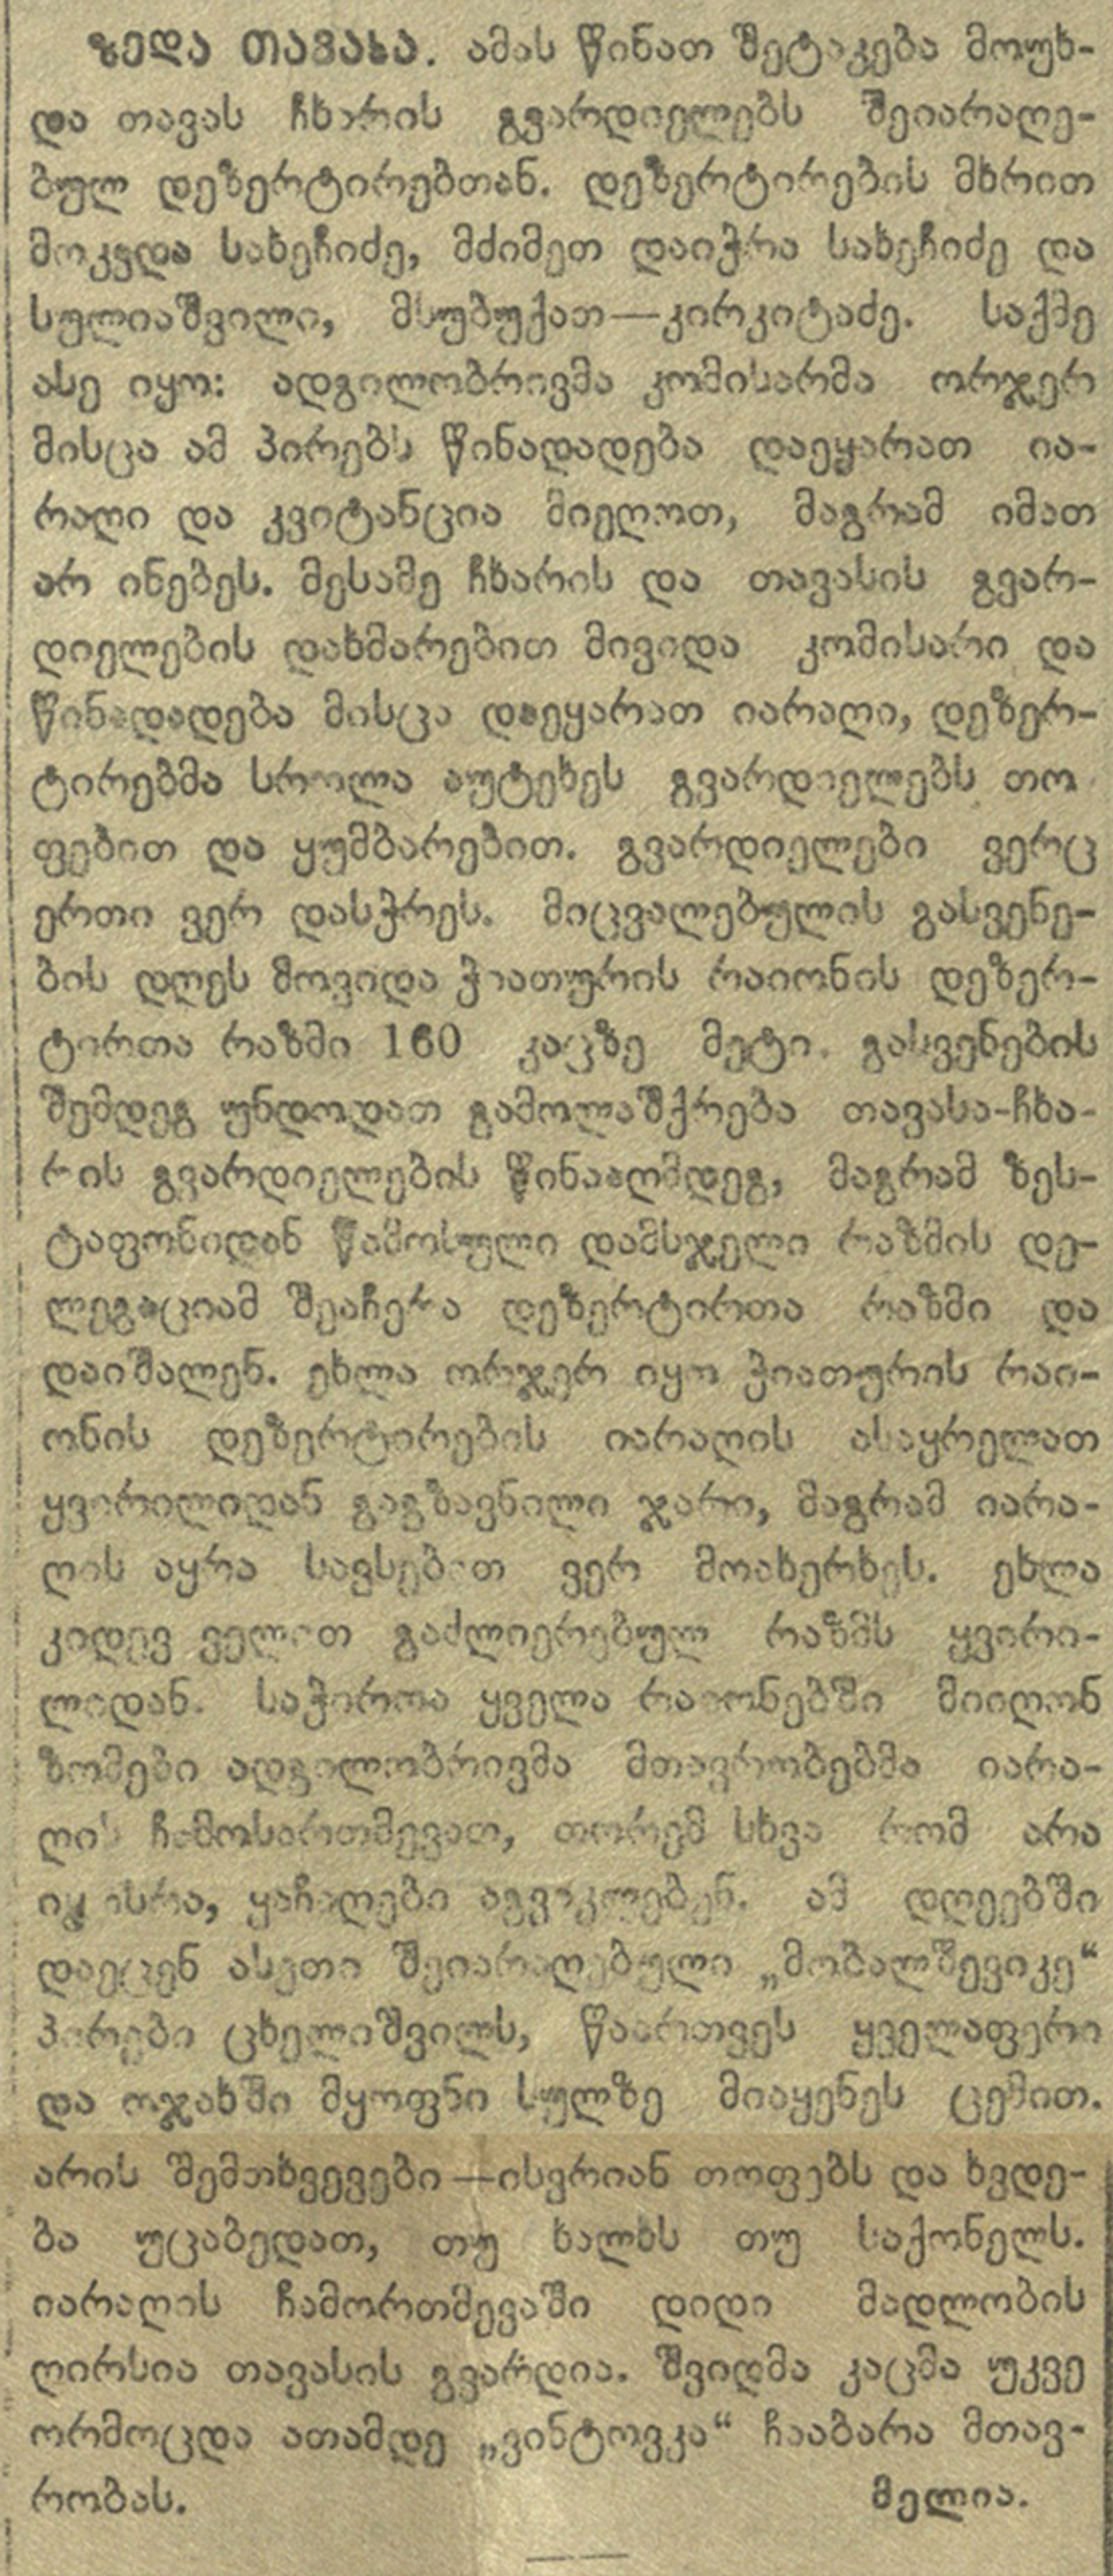 ზედა თავასა. ამას წინათ შეტაკება მოუხ-
და თავას ჩხარის გვარდიელებს შეიარაღე-
ბულ დეზერტირებთან. დეზერტირების მხრით
მოკვდა სახეჩიძე, მძიმეთ დაიჭრა სახეჩიძე და
სულიაშვილი, მსუბუქათ—კირკიტაძე. საქმე
ასე იყო: ადგილობრივმა კომისარმა ორჯერ
მისცა ამ პირებს წინადადება დაეყარათ ია-
რაღი და კვიტანცია მიეღოთ, მაგრამ იმათ
არ ინებეს. მესამე ჩხარის და თავასის გვარ-
დიელების დახმარებით მივიდა კომისარი და
წინადადება მისცა დაეყარათ იარაღი, დეზერ-
ტირებმა სროლა აუტეხეს გვარდიელებს თო
ფებით და ყუმბარებით. გვარდიელები ვერც
ერთი ვერ დასჭრეს. მიცვალებულის გასვენე-
ბის დღეს მოვიდა ჭიათურის რაიონის დეზერ-
ტირთა რაზმი 160 კაცზე მეტი. გასვენების
შემდეგ უნდოდათ გამოლაშქრება თავასა-ჩხა-
რის გვარდიელების წინააღმდეგ, მაგრამ ზეს-
ტაფონიდან წამოსული დამსჯელი რაზმის დე-
ლეგაციამ შეაჩერა დეზერტირთა რაზმი და
დაიშალენ. ეხლა ორჯერ იყო ჭიათურის რაი-
ონის დეზერტირების იარაღის ასაყრელათ
ყვირილიდან გაგზავნილი ჯარი, მაგრამ იარა-
ღის აყრა სავსებით ვერ მოახერხეს. ეხლა
კიდევ ველით გაძლიერებულ რაზმს ყვირი-
ლიდან. საჭიროა ყველა რაიონებში მიიღონ
ზომები ადგილობრივმა მთავრობებმა იარა-
ღის ჩამოსართმევათ, თორემ სხვა რომ არა
იყოსრა, ყაჩაღები აგვიკლებენ. ამ დღეებში
დაეცენ ასეთი შეიარაღებული „მობალშევიკე“
პირები ცხელიშვილს, წაართვეს ყველაფერი
და ოჯახში მყოფნი სულზე მიაყენეს ცემით.
არის შემთხვევები—ისვრიან თოფებს და ხვდე-
ბა უცაბედათ, თუ ხალხს თუ საქონელს.
იარაღის ჩამორთმევაში დიდი მადლობის
ღირსია თავასის გვარდია. შვიდმა კაცმა უკვე
ორმოცდა ათამდე „ვინტოვკა“ ჩააბარა მთავ-
რობას. მელია.